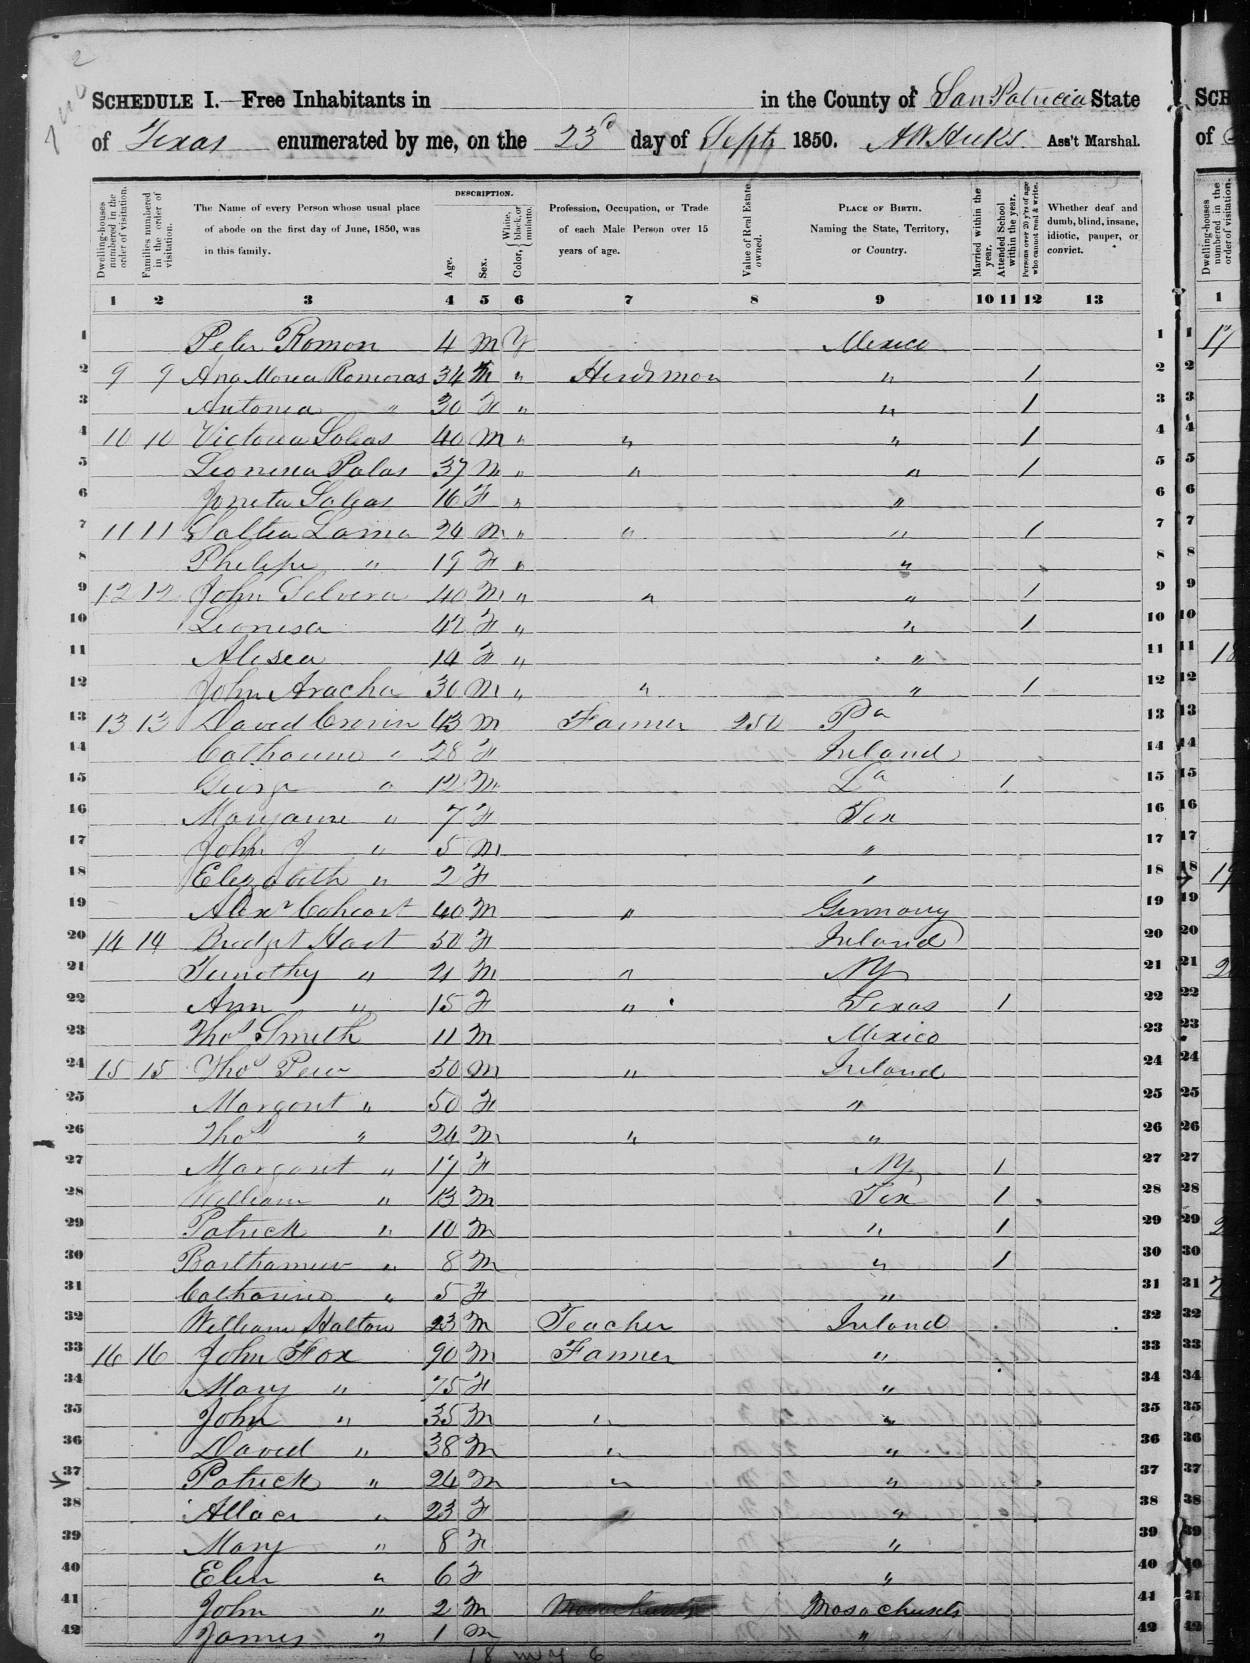 2
SCHEDULE I.—Free Inhabitants in in the County of San Patricia State
of Texas enumerated by me, on the 23d day of Sept 1850. Ass't Marshal.
Dwelling-houses numbered in the order of visitation.
Families numbered in the order of visitation.
The Name of every Person whose usual place of abode on the first day of June, 1850, was in this family.
DESCRIPTION.
Age.
Sex.
Color, { White, black, or mulatto.
Profession, Occupation, or Trade of each Male Person over 15 years of age.
Value of Real Estate owned.
PLACE OF BIRTH. Naming the State, Territory, or Country.
Married within the year.
Attended School within the year.
Persons over 20 y'rs of age who cannot read & write.
Whether deaf and dumb, blind, insane, idiotic, pauper, or convict.
1 2 3 4 5 6 7 8 9 10 11 12 13
1 Peter Romon 4 M Mexico 1
2 9 9 Ana Morea Romoras 34 M " Herdsman " 1 2
3 Antonia " 30 F " " 1 3
4 10 10 Victoria Soleas 40 M " " " 1 4
5 Leonesea Palas 37 M " " " 1 5
6 Joneta Soleas 16 F " " 6
7 11 11 Loma 24 M " " " 1 7
8 Phelipe " 19 F " " 8
9 12 12 John Selvera 40 M " " " 1 9
10 Leonesa 42 F " " 1 10
11 Alesea 14 F " " 11
12 John Aracha 30 M " " " 1 12
13 13 13 David Cronin 43 M Farmer 250 Pa 13
14 Catharine " 28 F Ireland 14
15 George " 12 M La 1 15
16 Maryann " 7 F Tex 16
17 John J " 5 M " 17
18 Elizabeth " 2 F " 18
19 Alexr 40 M " Germany 19
20 14 14 Bridget Hart 50 F Ireland 20
21 Timothy " 21 M " NY 21
22 Ann " 15 F " Texas 1 22
23 Thos Smith 11 M Mexico 23
24 15 15 Thos Pew 50 M " Ireland 24
25 Margaret " 50 F " 25
26 Thos " 24 M " " 26
27 Margaret " 17 F NY 1 27
28 William " 13 M Tex 1 28
29 Patrick " 10 M " 1 29
30 Barthamew " 8 M " 1 30
31 Catharine " 5 F " 31
32 William Halton 23 M Teacher Ireland 32
33 16 16 John Fox 90 M Farmer " 33
34 Mary " 75 F " 34
35 John " 35 M " " 35
36 David " 38 M " " 36
37 Patrick " 24 M " " 37
38 Allace " 23 F " " 38
39 Mary " 8 F " 39
40 Elen " 6 F " 40
41 John " 2 M Masachusets 41
42 James " 1 M " 42